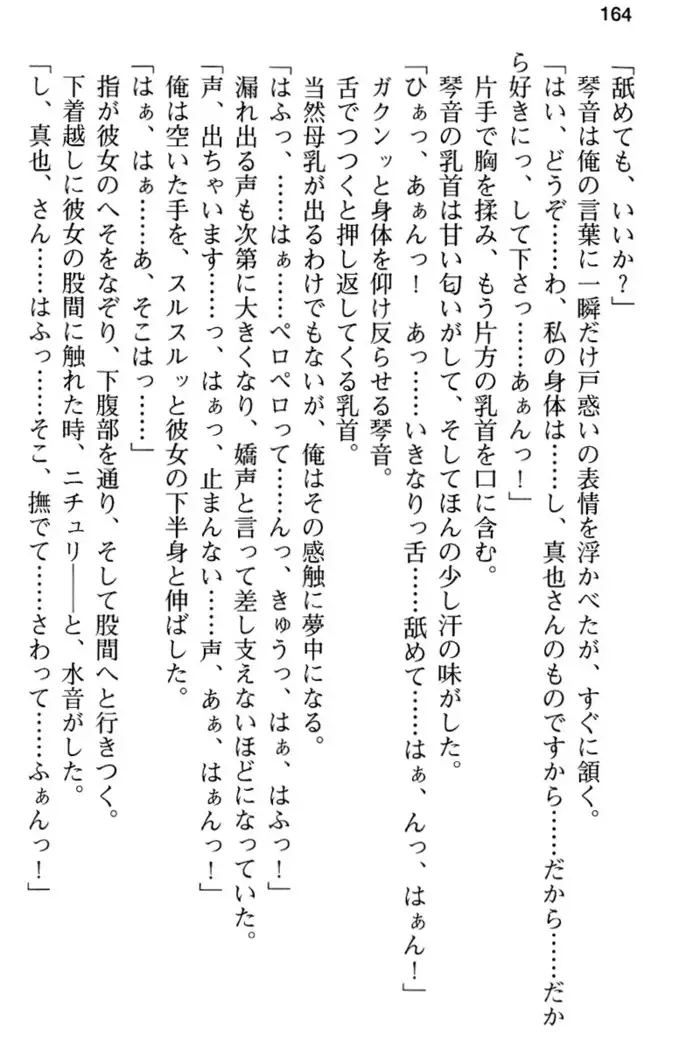 164
「舐めても、いいか?」
琴音は俺の言葉に一瞬だけ戸惑いの表情を浮かべたが、すぐに頷く。
「はい、どうぞ……わ、私の身体は……し、真也さんのものですから……だから……だか
ら好きにっ、して下さっ……あぁんっ!」
片手で胸を揉み、もう片方の乳首を口に含む。
琴音の乳首は甘い匂いがして、そしてほんの少し汗の味がした。
「ひぁっ、あぁんっ! あっ……いきなりっ舌……舐めて……はぁ、んっ、はぁん!」
ガクンッと身体を仰け反らせる琴音。
舌でつつくと押し返してくる乳首。
当然母乳が出るわけでもないが、俺はその感触に夢中になる。
「はふっ、……はぁ……ペロペロって……んっ、きゅうっ、はぁ、はふっ!」
漏れ出る声も次第に大きくなり、嬌声と言って差し支えないほどになっていた。
「声、出ちゃいます……っ、はぁっ、止まんない……声、あぁ、はぁんっ!」
俺は空いた手を、スルスルッと彼女の下半身と伸ばした。
「はぁ、はぁ……あ、そこはっ……」
指が彼女のへそをなぞり、下腹部を通り、そして股間へと行きつく。
下着越しに彼女の股間に触れた時、ニチュリ――と、水音がした。
「し、真也、さん……はふっ……そこ、撫でて……さわって……ふぁんっ!」